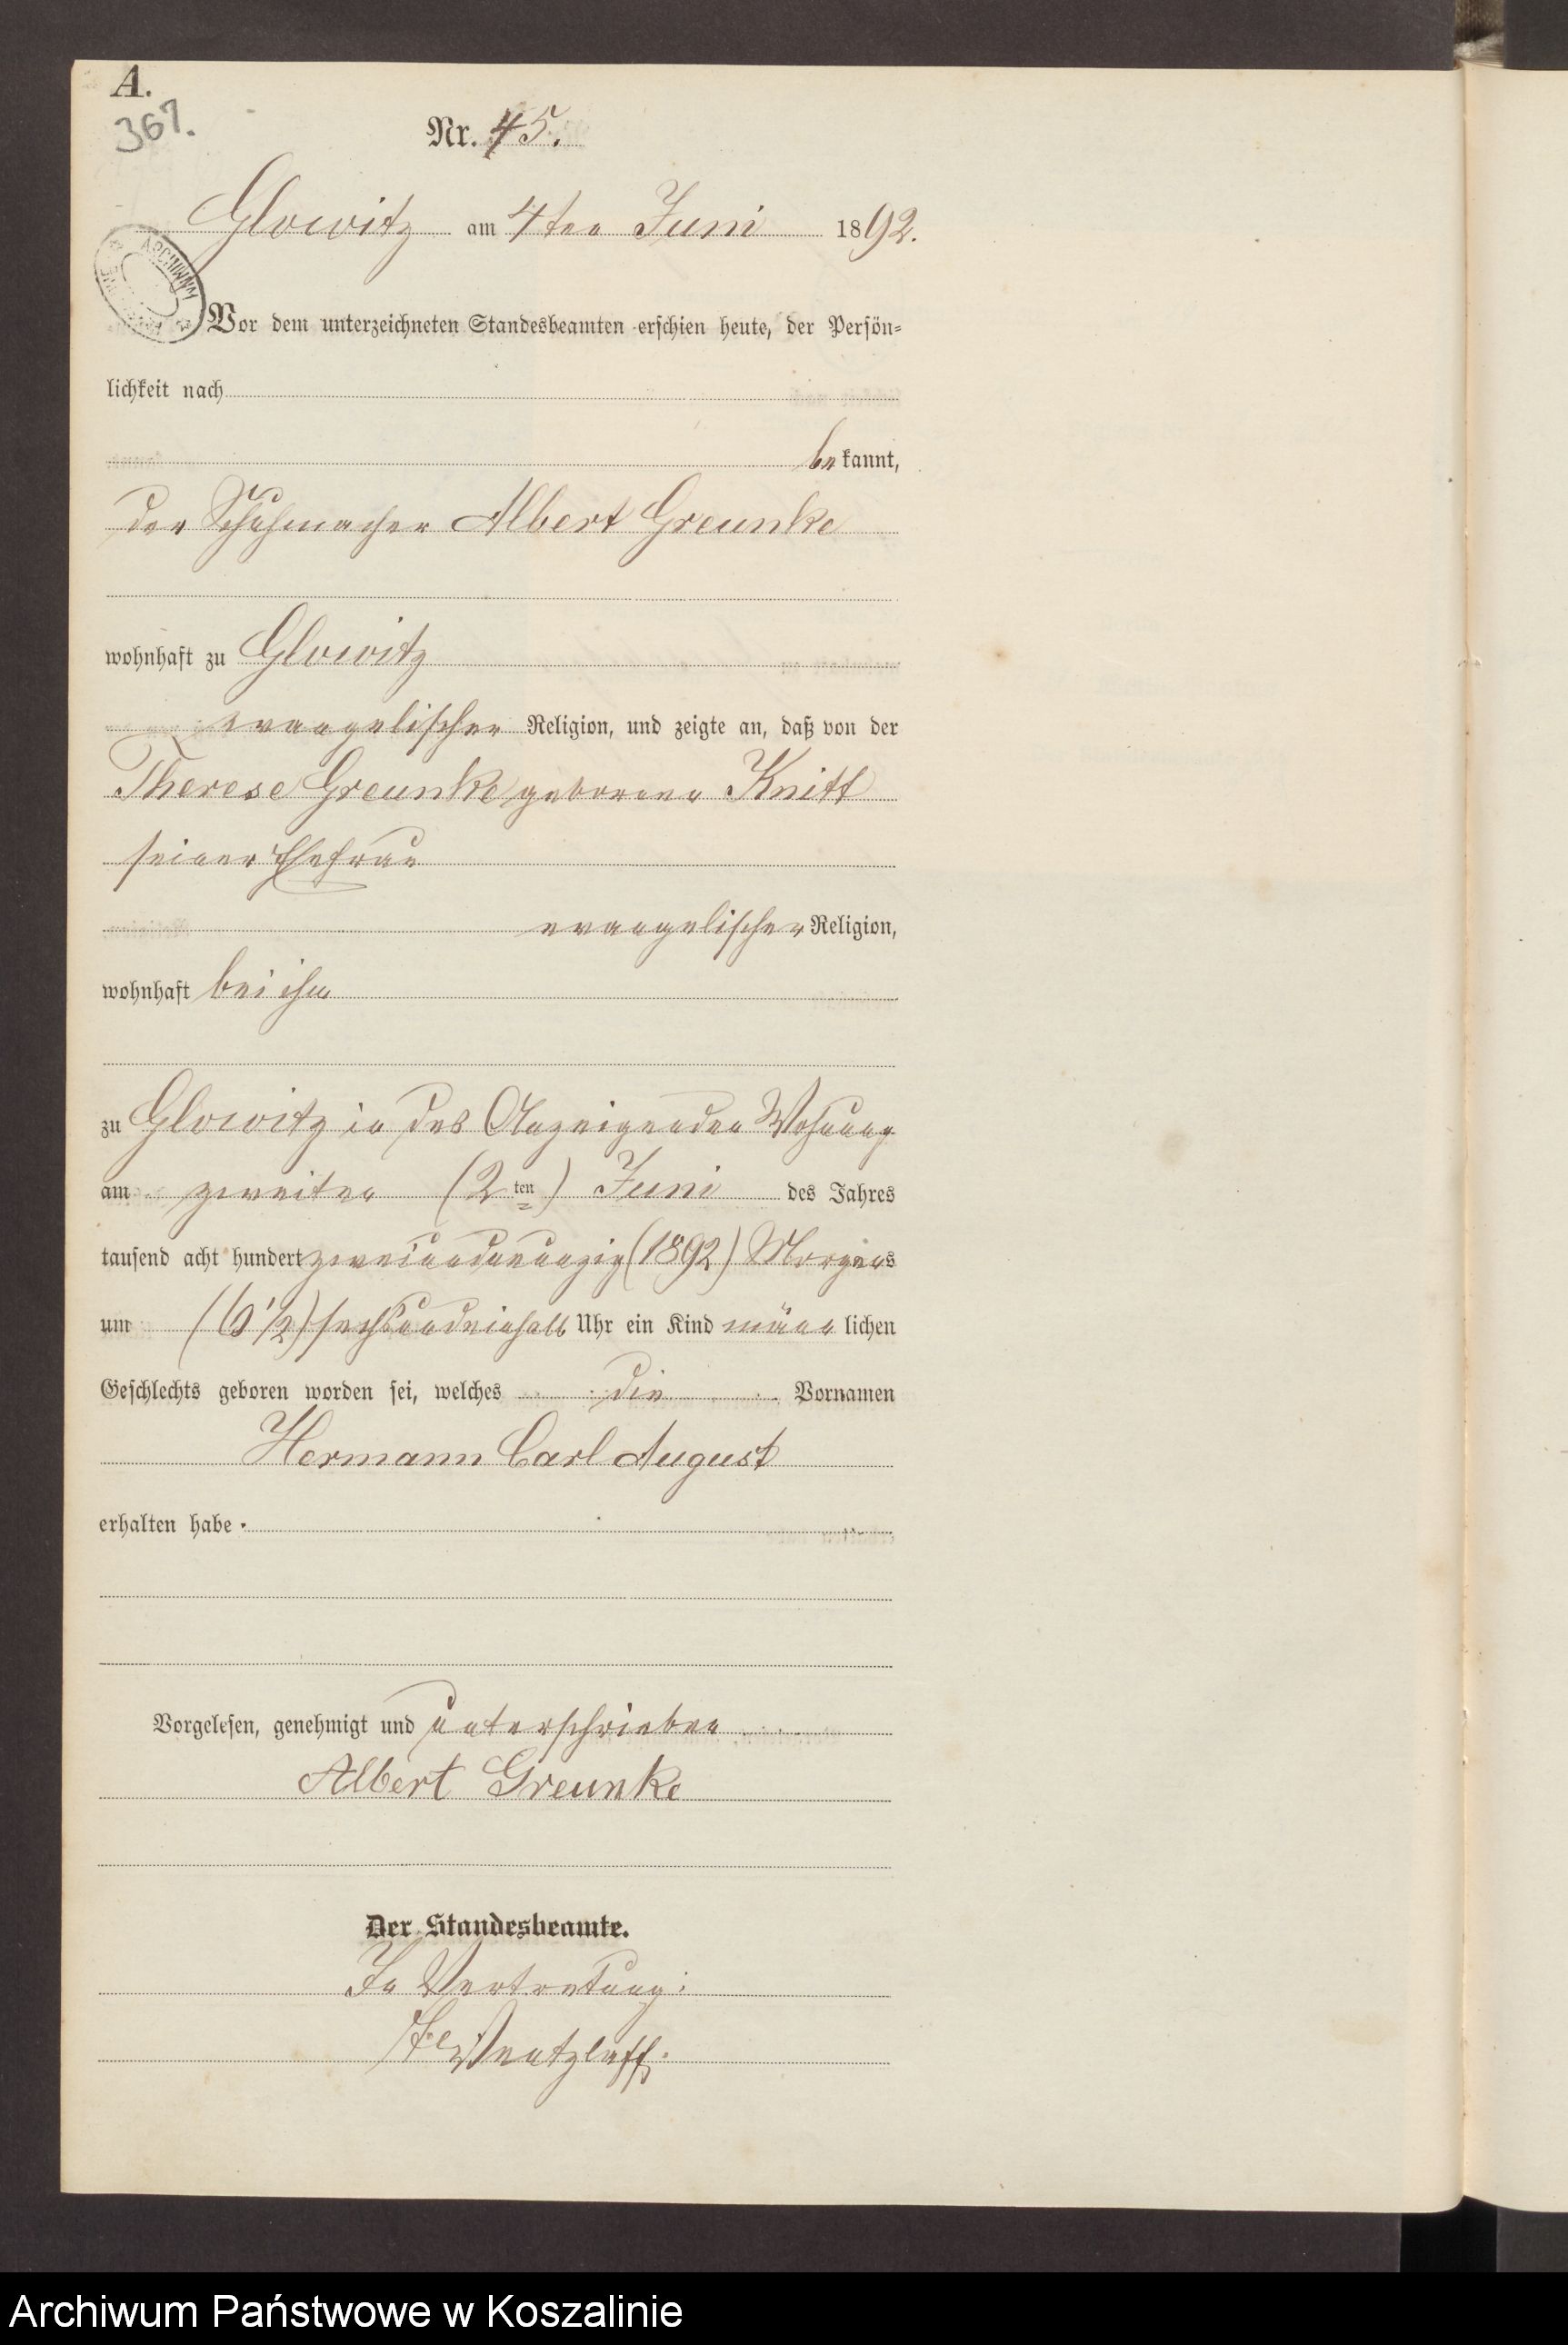 A.
367.
Nr. 45.
Glowitz am 4ten Juni 1892.
ARCHIWUM
Vor dem unterzeichneten Standesbeamten erschien heute, der Persön-
lichkeit nach
bekannt,
der Schuhmacher Albert Greunke
wohnhaft zu Glowitz
evangelischer Religion, und zeigte an, daß von der
Therese Greunke geborene Knitt
seiner Ehefrau
evangelischer Religion,
wohnhaft bei ihm
zu Glowitz in des Anzeigenden Wohnung
am zweiten (2ten) Juni des Jahres
tausend acht hundert zweiundneunzig (1892) Morgens
um (6 1/2) sechsundeinhalb Uhr ein Kind männlichen
Geschlechts geboren worden sei, welches die Vornamen
Hermann Carl August
erhalten habe.
Vorgelesen, genehmigt und unterschrieben
Albert Greunke
Der Standesbeamte.
In Vertretung:
Wentzlaff.
Archiwum Państwowe w Koszalinie